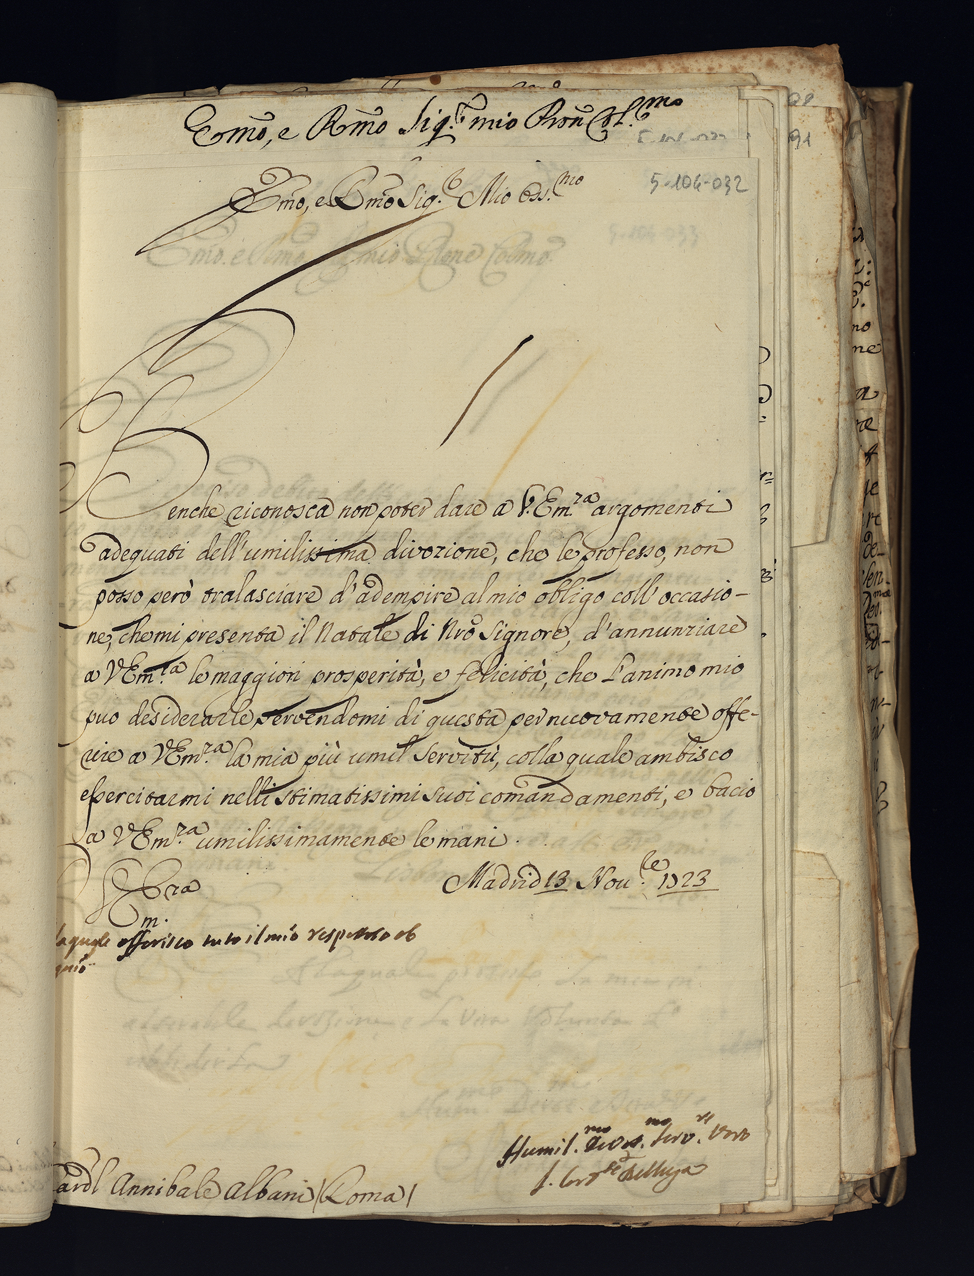 Emo, e Rmo Sig.r mio Pron Col.mo
5-104-032
Emo, e Rmo Sig.r Mio Oss.mo
Benche riconosca non poter dare a V. Em.za argomenti
adequati dell'umilissima divozione, che le professo, non
posso però tralasciare d'adempire al mio obligo coll'occasio-
ne, che mi presenta il Natale di Nro Signore, d'annunziare
a VEm.za le maggiori prosperità, e felicità, che l'animo mio
puo desiderarle servendomi di questa per nuovamente offe-
rire a VEm.za la mia più umil servitù, colla quale ambisco
essercitarmi nelli stimatissimi suoi comandamenti, e bacio
a VEm.za umilissimamente le mani.
Madrid 13 Nov.re 1723
V Em.za
la quale offerisco tutto il mio respettoso ob
quió
Humil.mo Devot.mo Serv.re Vero
L. Card.le Belluga
Cardl Annibale Albani (Roma)